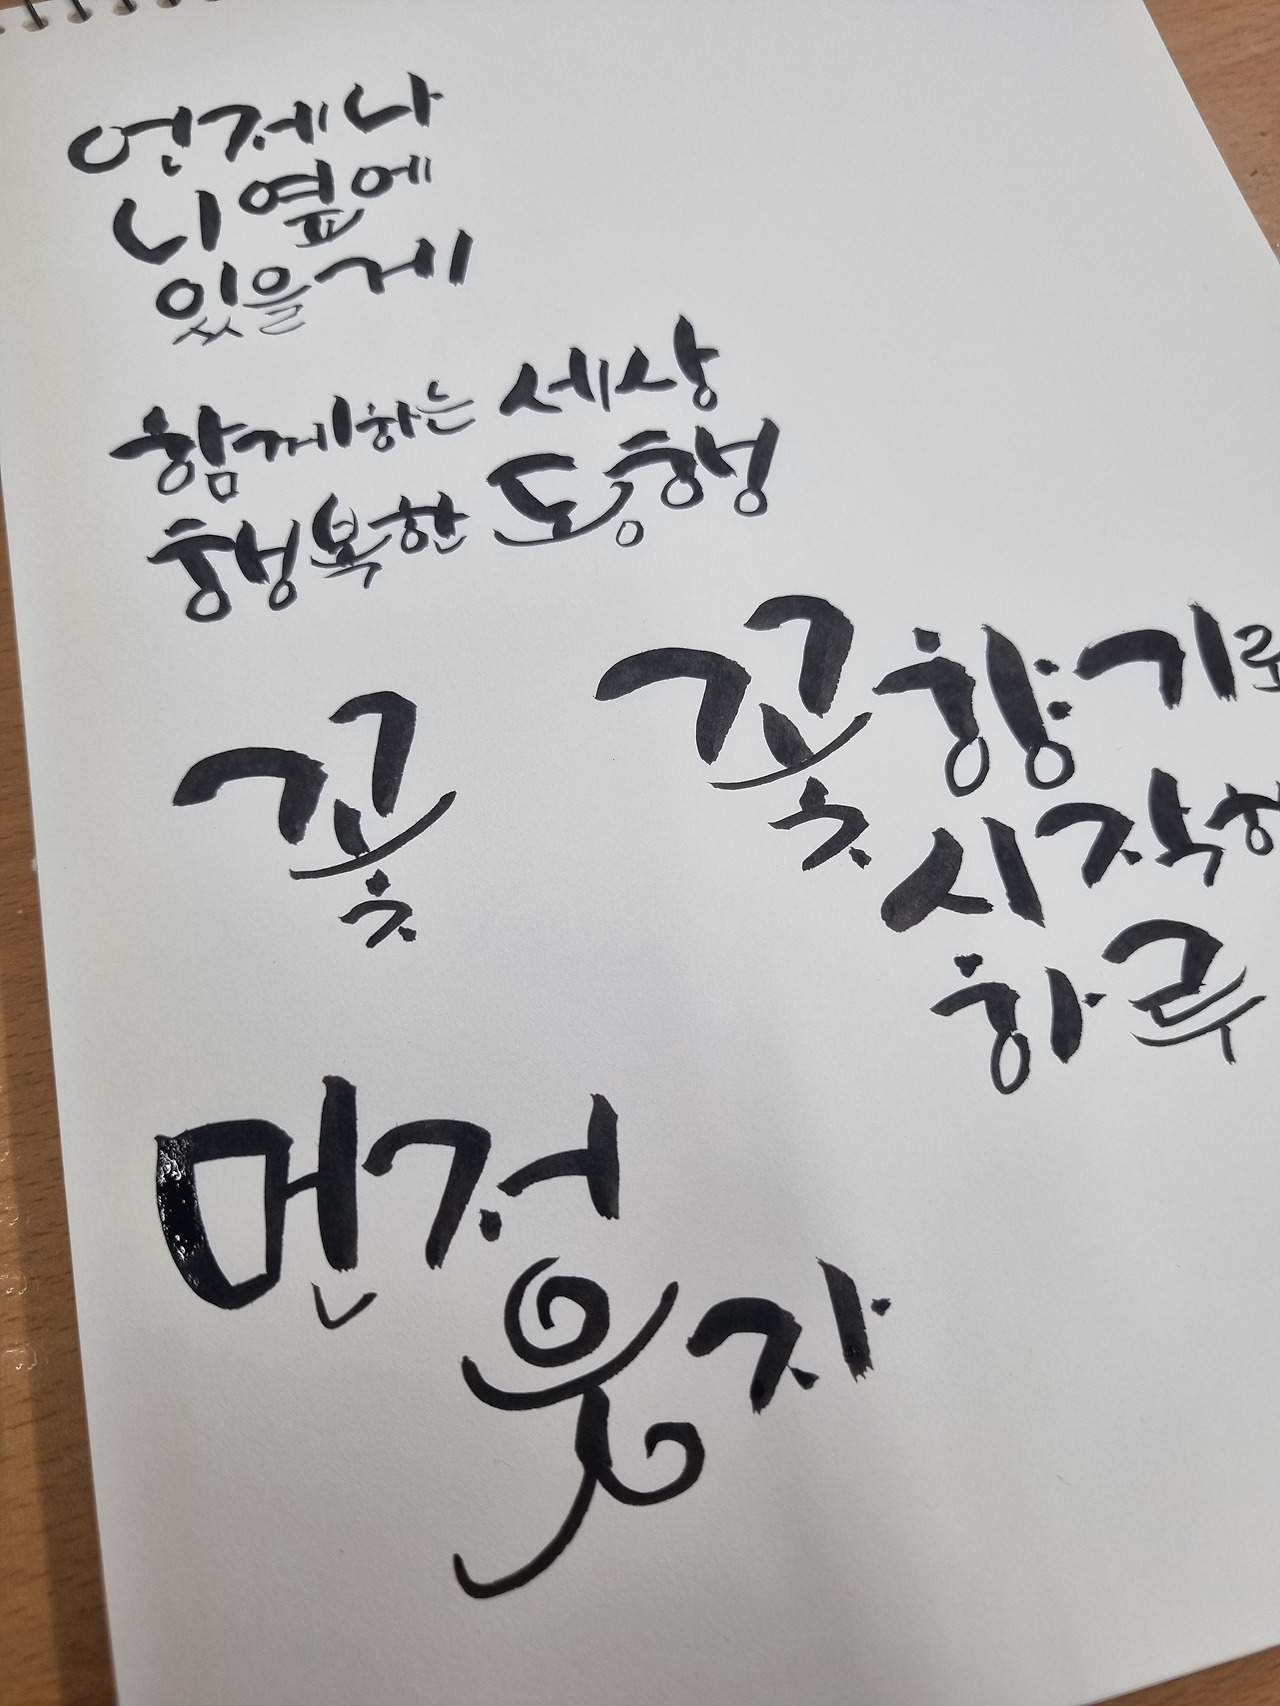 언제나
니 옆에
있을게
함께하는 세상
행복한 동행
꽃
꽃향기로
시작하
하루
먼저
웃자